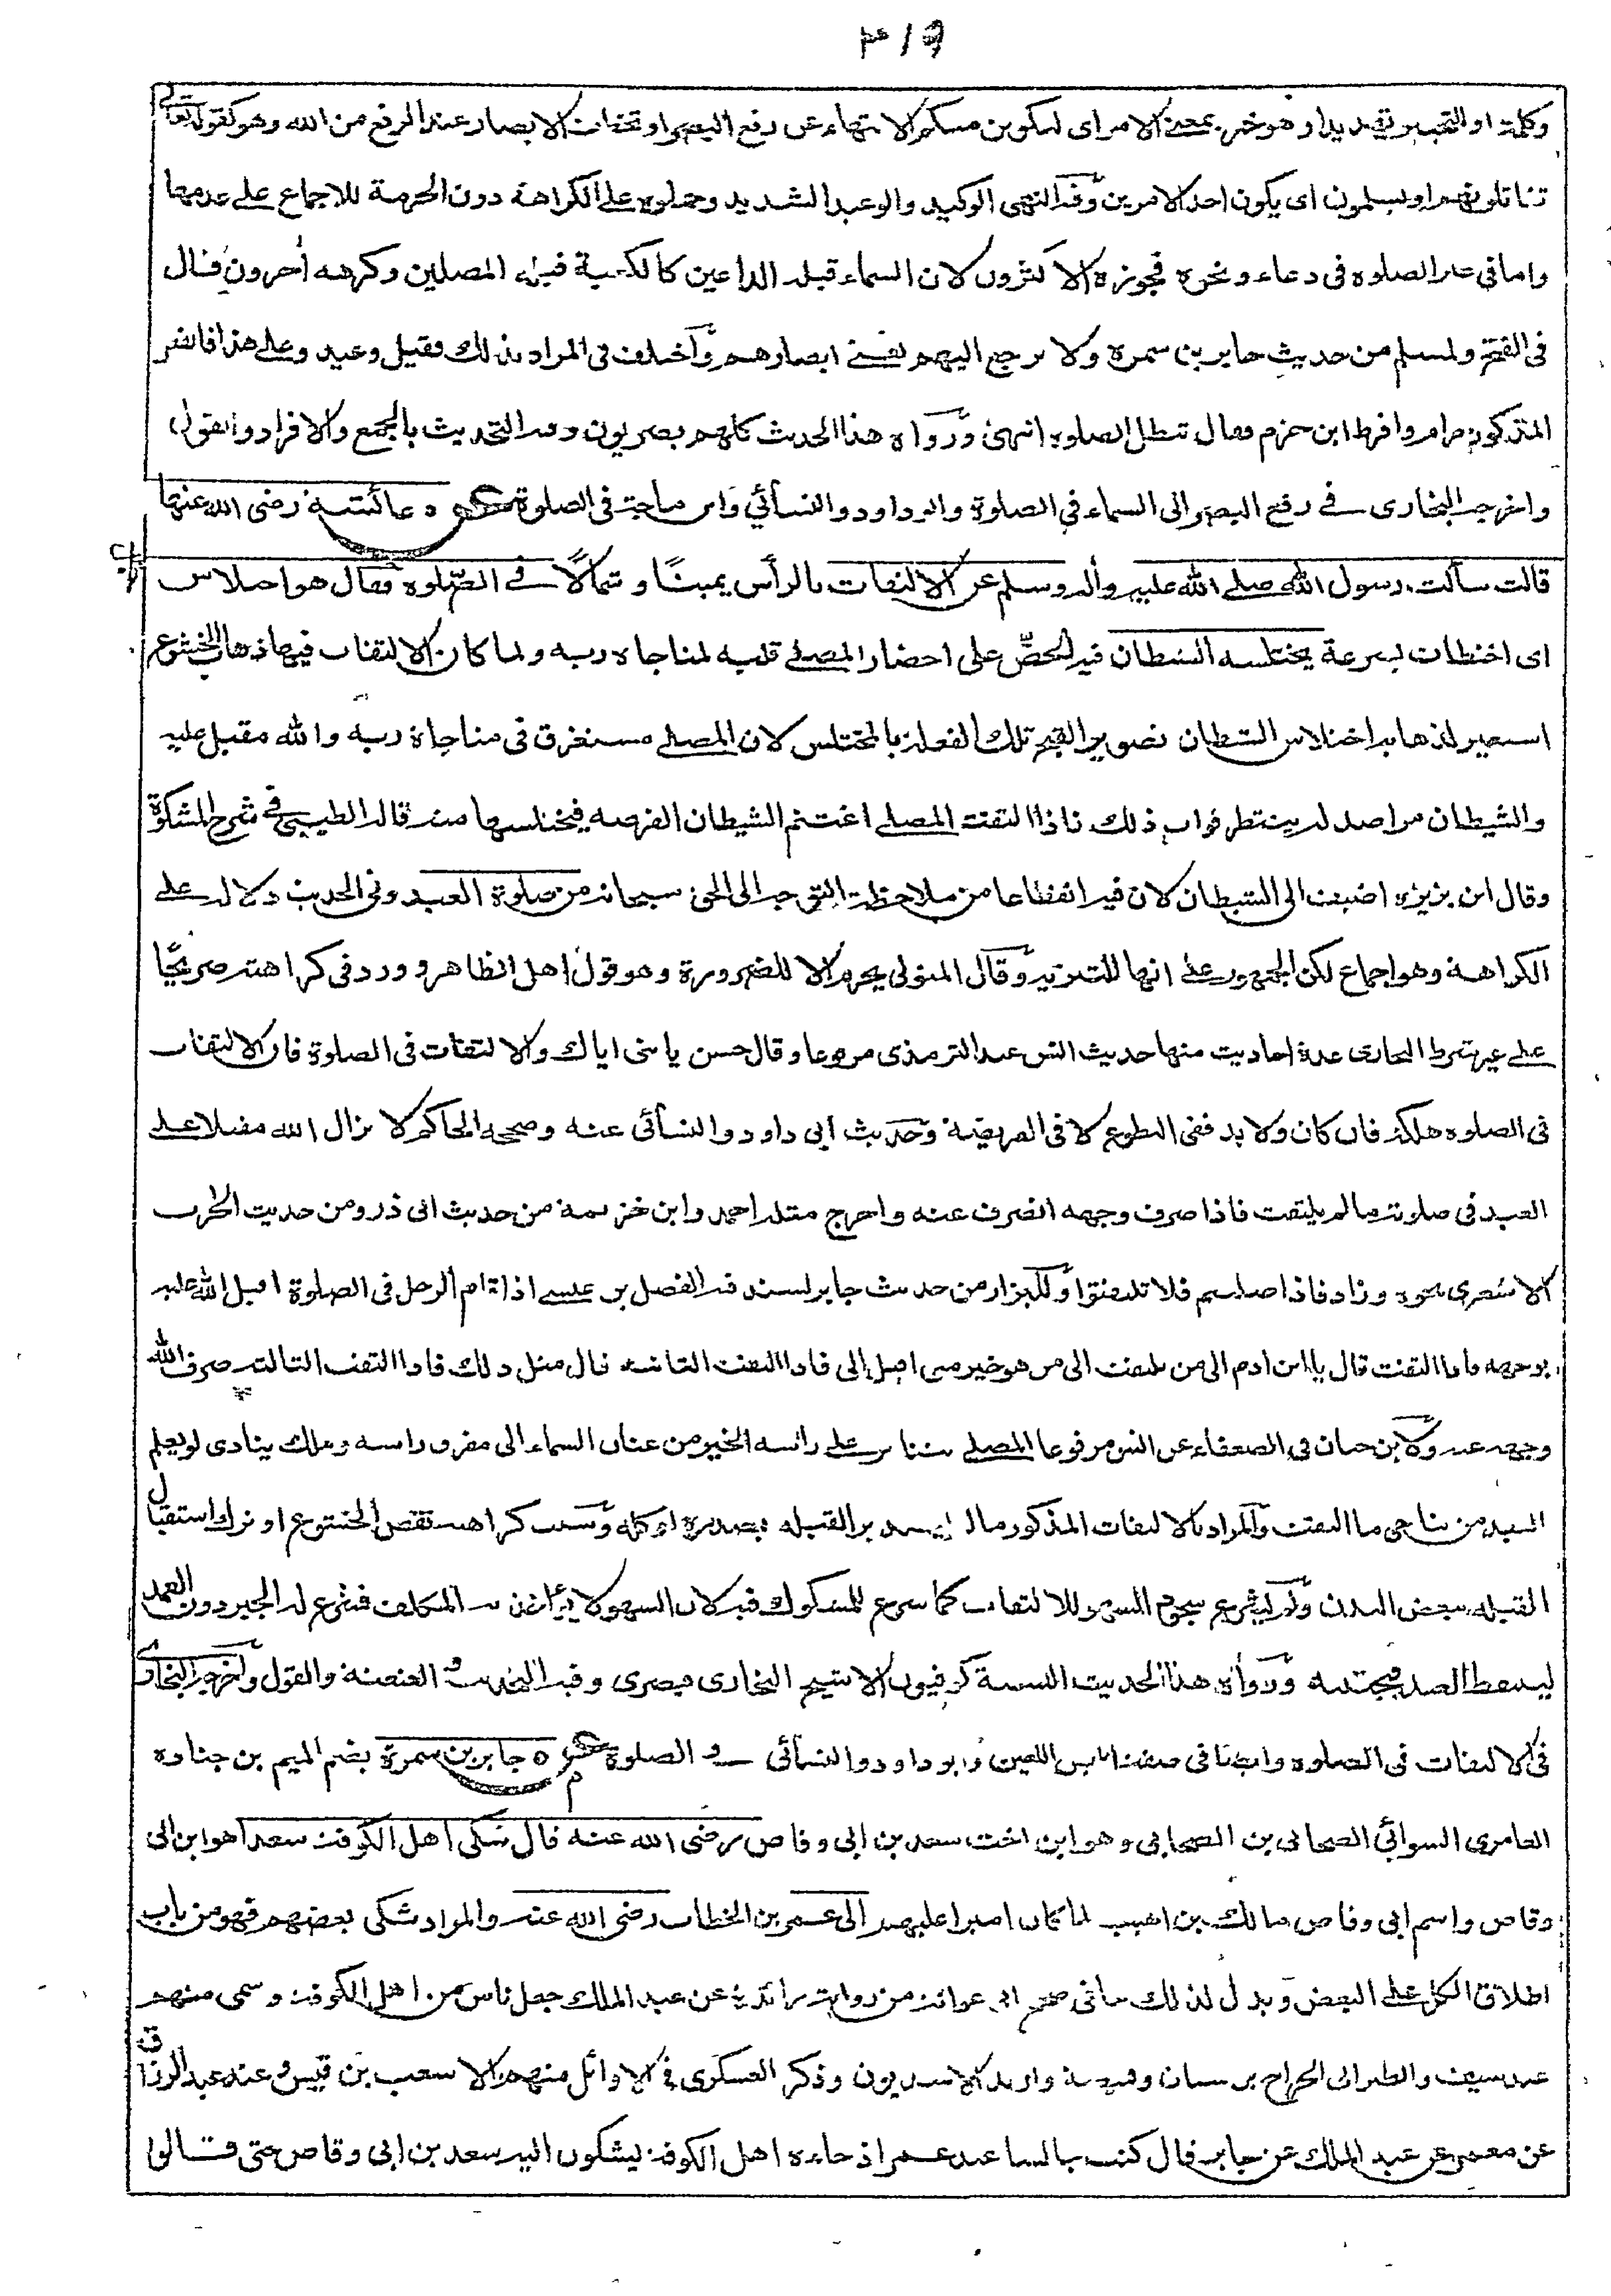 ٣١٩
وكلمة او للتخيير تهديدا وهو خبر بمعنى الامر اى ليكونن منكم الانتهاء عن رفع البصر او تخطف الابصار عند الرفع من الله وهو كقوله تعالى
تقاتلونهم او يسلمون اى يكون احد الامرين وفيه النهى الوكيد والوعيد الشديد وحملوه على الكراهة دون الحرمة للاجماع على عدمها
واما فى غير الصلوه فى دعاء ونحوه فجوزه الاكثرون لان السماء قبلة الداعين كالكعبة قبلة المصلين وكرهه أخرون قال
فى الفتح ولمسلم من حديث جابر بن سمرة ولا ترجع اليهم يعنى ابصارهم وأختلف فى المراد بذلك فقيل وعيد وعلى هذا فالفعل
المذكور حرام وافرط ابن حزم فقال تبطل الصلوه انتهى ورواه هذا الحديث كلهم بصريون وفيه التحديث بالجمع والافراد والقول
واخرجه البخارى فى رفع البصر الى السماء فى الصلوة وابو داود والنسائي وابن ماجة فى الصلوة عائشة رضى الله عنها
قالت سألت رسول الله صلى الله عليه وأله وسلم عن الالتفات بالرأس يمينًا و شمالًا فى الصّلوه فقال هو اختلاس
اى اختطاف بسرعة يختلسه الشيطان فيه الحضّ على احضار المصلى قلبه لمناجاه ربه ولما كان الالتفات فيها ذهاب الخشوع
استعير لذهابه اختلاس الشيطان تصويرا لقبح تلك الفعلة بالمختلس لان المصلى مستغرق فى مناجاة ربه والله مقبل عليه
والشيطان مراصد له ينتظر فوات ذلك فاذا التفت المصلى اغتنم الشيطان الفرصه فيختلسها منه قاله الطيبى فى شرح المشكوة
وقال ابن بزيزه اضيف الى الشيطان لان فيه انقطاعا من ملاحظة التوجه الى الحق سبحانه من صلوة العبد وفى الحديث دلالة على
الكراهة وهو اجماع لكن الجمهور على انها للتنزيه وقال المتولى يحرم الا للضرورة وهو قول اهل الظاهر و ورد فى كراهته صريحًا
على غير شرط البخارى عدة احاديث منها حديث انس عند الترمذى مرفوعا وقال حسن يا بنى اياك والالتفات فى الصلوة فان الالتفات
فى الصلوه هلكة فان كان ولا بد ففى التطوع لا فى الفريضة وحديث ابى داود والنسائى عنه وصححه الحاكم لا يزال الله مقبلا على
العبد فى صلوته ما لم يلتفت فاذا صرف وجهه انصرف عنه واخرج مثله احمد وابن خزيمة من حديث ابى ذر ومن حديث الحرث
الاشعرى نحوه وزاد فاذا صليتم فلا تلتفتوا وللبزار من حديث جابر بسند فيه الفضل بن عيسى اذا قام الرجل فى الصلوة اقبل الله عليه
بوجهه فاذا التفت قال يا ابن ادم الى من تلتفت الى من هو خير منى اقبل الى فاذا التفت الثانية قال مثل ذلك فاذا التفت الثالثة صرف الله
وجهه عنه ولابن حبان فى الضعفاء عن انس مرفوعا المصلى يتناثر على رأسه الخير من عنان السماء الى مفرق راسه وملك ينادى لو يعلم
العبد من يناجى ما التفت والمراد بالالتفات المذكور ما لم يستدبر القبله بصدره او كله وسبب كراهته نقص الخشوع او ترك استقبال
القبله ببعض البدن ولم يشرع سجود السهو للالتفات كما شرع للشكوك فيه لان السهو لا يؤاخذ به المكلف فشرع له الجبر دون العمد
ليتيقظ العبد فيجتنبه ورواه هذا الحديث الستة كوفيون الا شيخ البخارى فبصرى وفيه التحديث و العنعنة والقول واخرجه البخارى
فى الالتفات فى الصلوه وايضا فى صفة ابليس اللعين وابو داود والنسائى فى الصلوة جابر بن سمرة بضم الميم بن جناده
العامرى السوائى الصحابى بن الصحابى وهو ابن اخت سعد بن ابى وقاص رضى الله عنه قال شكى اهل الكوفة سعدا هو ابن ابى
وقاص واسم ابى وقاص مالك بن اهيب لما كان اميرا عليهم الى عمر بن الخطاب رضى الله عنه والمراد شكى بعضهم فهو من باب
اطلاق الكل على البعض ويدل لذلك ما فى صحيح ابى عوانة من رواية زائدة عن عبد الملك جعل ناس من اهل الكوفة وسمى منهم
عند سيف والطبرانى الجراح بن سنان وقبيصة واربد الاسديون وذكر العسكرى فى الاوائل منهم الاشعث بن قيس وعند عبد الرزاق
عن معمر عن عبد الملك عن جابر قال كنت جالسا عند عمر اذ جاءه اهل الكوفة يشكون اليه سعد بن ابى وقاص حتى قالوا